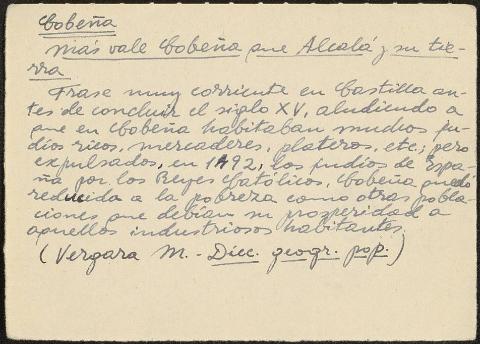 Cobeña
Más vale Cobeña que Alcalá y su tie-
rra
Frase muy corriente en Castilla an-
tes de concluir el siglo XV, aludiendo a
que en Cobeña habitaban muchos ju-
díos ricos, mercaderes, plateros, etc; pero
expulsados, en 1492, los judíos de Espa-
ña por los Reyes Católicos, Cobeña quedó
reducida a la pobreza como otras pobla-
ciones que debían su prosperidad a
aquellos industriosos habitantes.
(Vergara M. - Dicc. geogr. pop.)